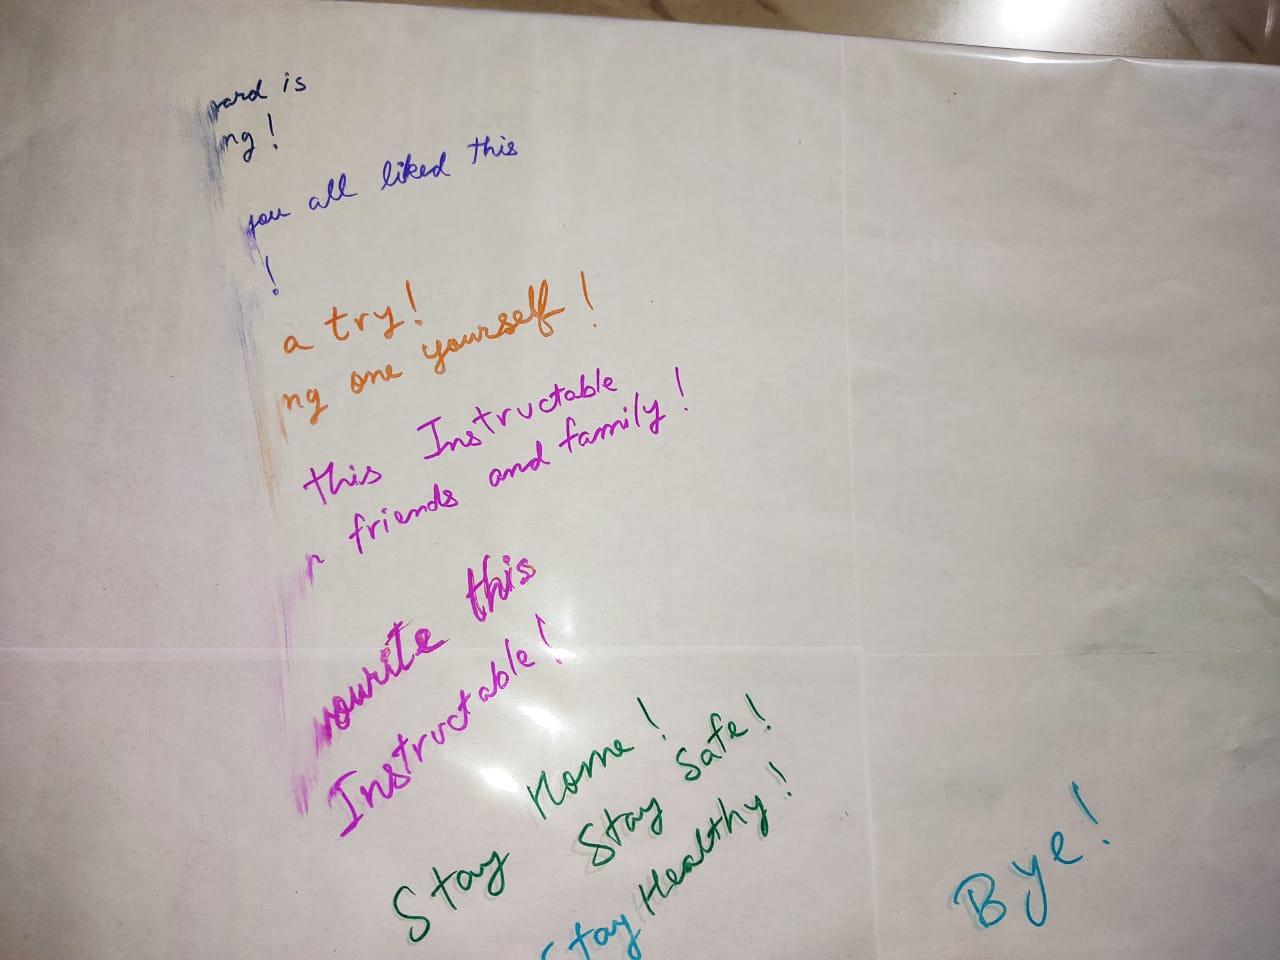 ard is
ng!
you all liked this
!
a try!
ng one yourself!
this Instructable
r friends and family!
vourite this
Instructable!
Stay Home!
Stay Safe!
Stay Healthy!
Bye!